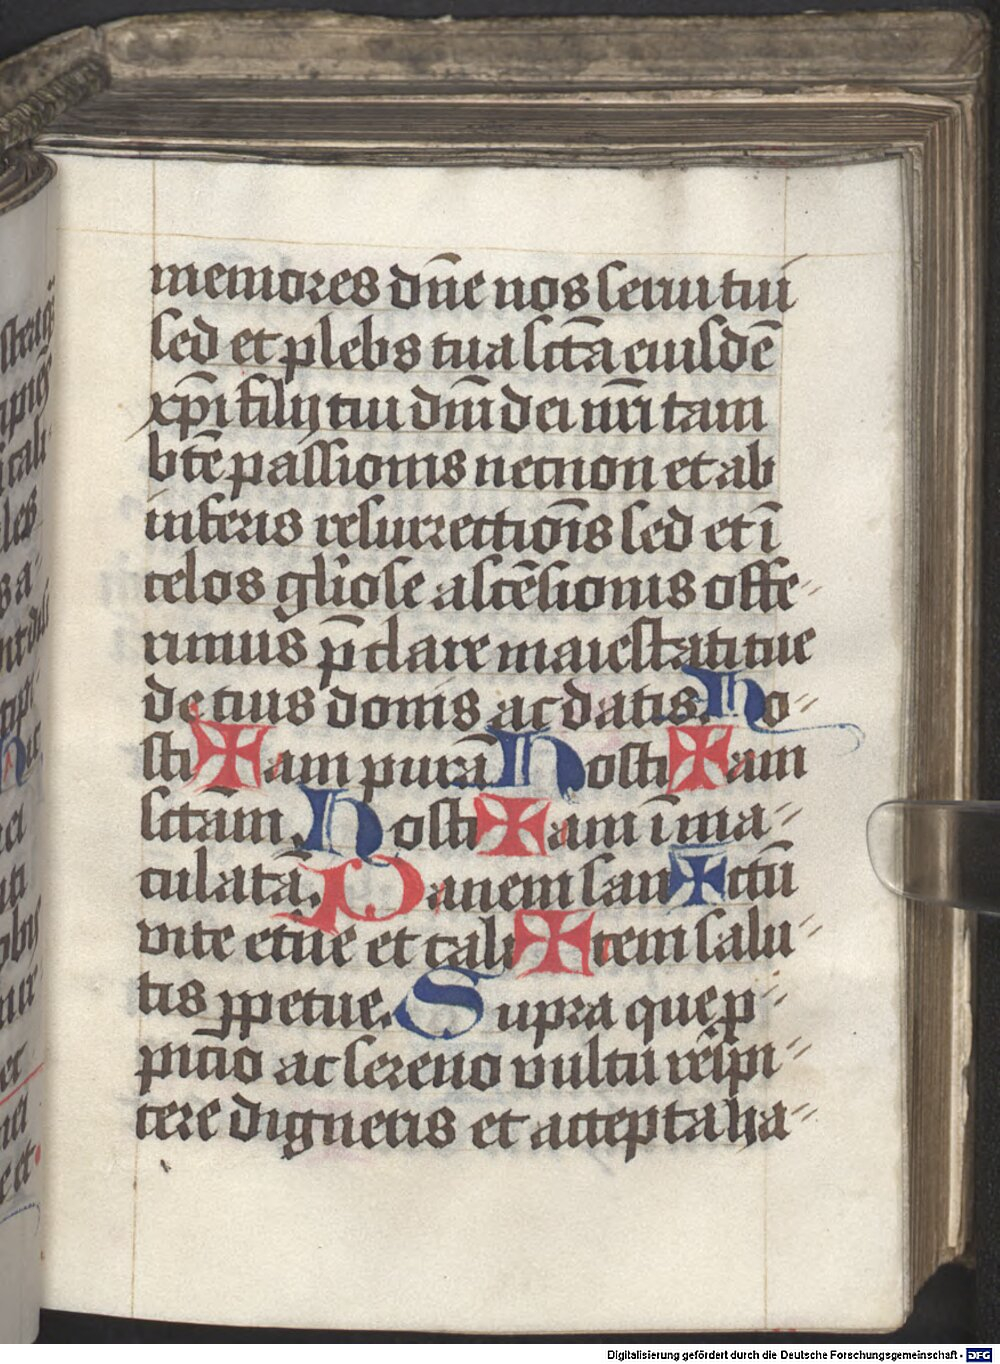 memores dn̄e nos serui tui
sed et plebs tua sctā eiusdē
xp̄i filij tui dn̄i dei nr̄i tam
btē passionis necnon et ab
inferis resurrectiōis sed et ī
celos gl'iose ascēsionis offe-
rimus p̄clare maiestati tue
de tuis donis ac datis. Ho-
sti✠am purā Hosti✠am
sctām. Hosti✠am īma-
culatā. Panem san✠ctū
vite etn̄e et cali✠cem salu-
tis ꝑpetue. Supra que ꝓ-
picio ac sereno vultu respi-
cere digneris et accepta ha-
Digitalisierung gefördert durch die Deutsche Forschungsgemeinschaft - DFG